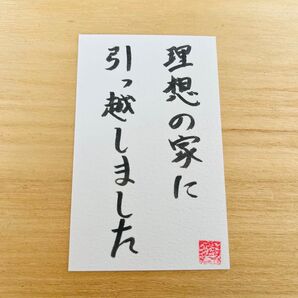 理想の家に
引っ越しました